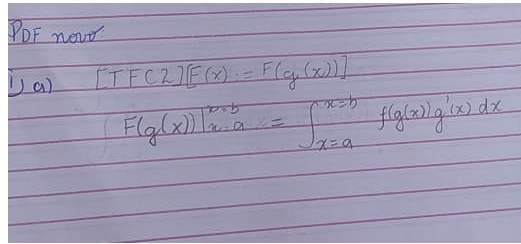 PDF novo
1) a) [TFC2] [F(x) = F(g(x))]
F(g(x)) |_{x=a}^{x=b} = ∫_{x=a}^{x=b} f(g(x)) g'(x) dx